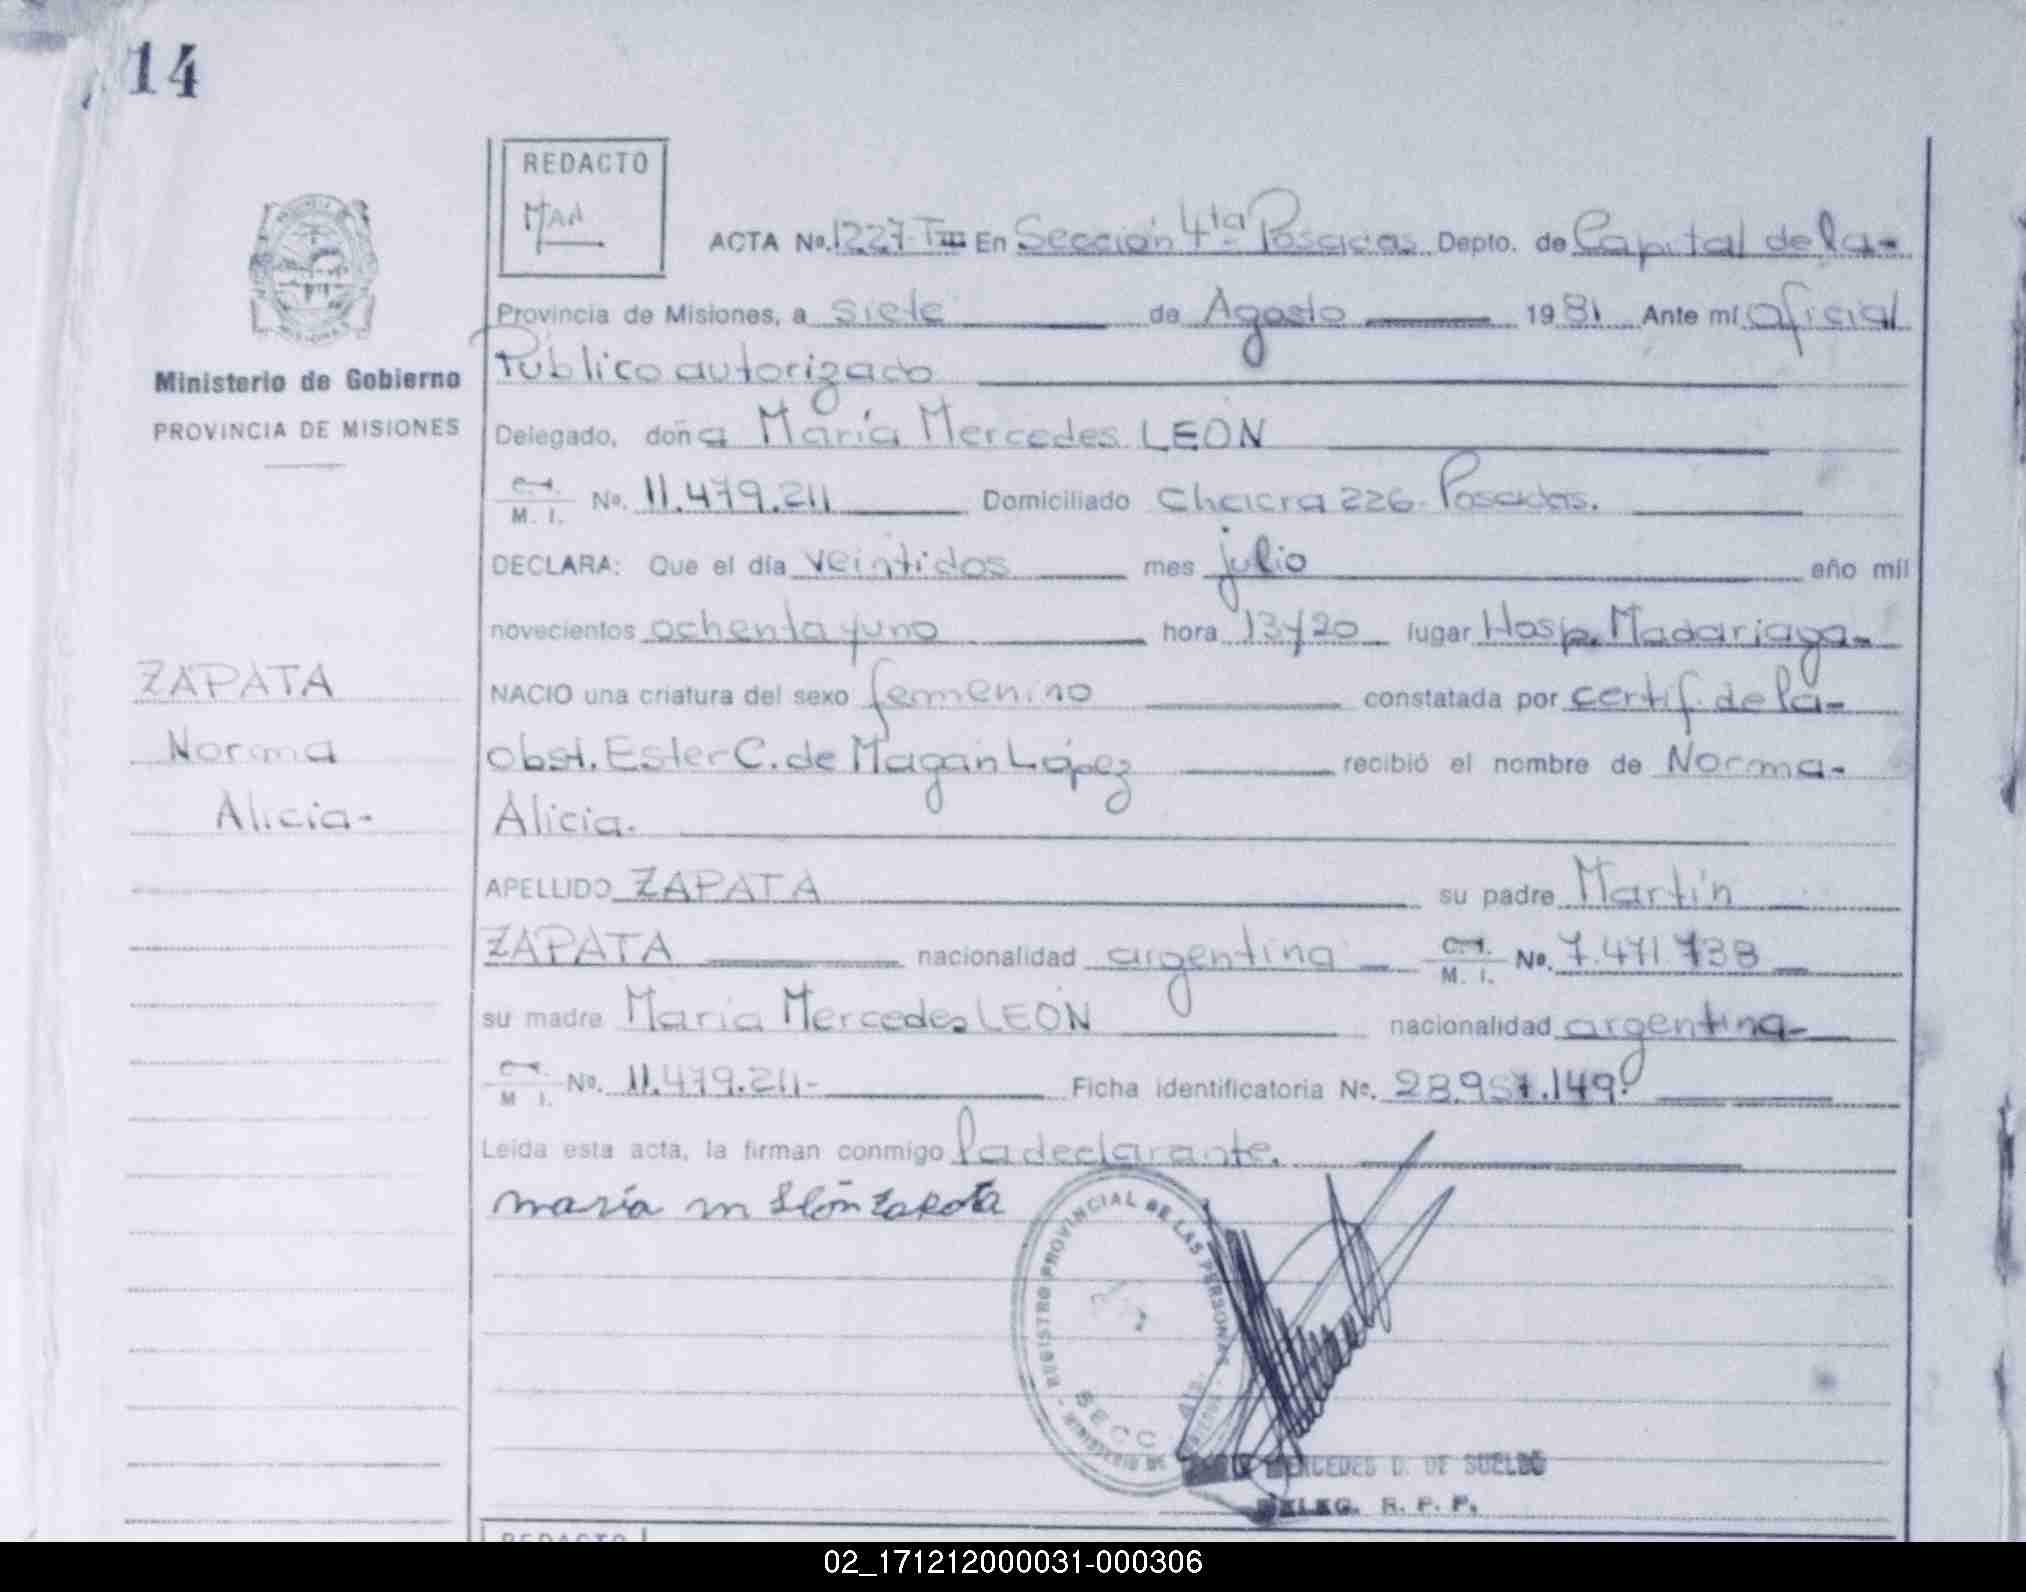 14
REDACTO
MAN
ACTA No. 1227-TIII En Sección 4ta Posadas Depto. de Capital de la-
Provincia de Misiones, a siete de Agosto 1981 Ante mí Oficial
Público autorizado
Delegado, doña María Mercedes LEÓN
C.I. M. I. No. 11.479.211 Domiciliado Chacra 226. Posadas.
DECLARA: Que el día veintidos mes julio año mil
novecientos ochenta y uno hora 13 y 20 lugar Hosp. Madariaga-
NACIO una criatura del sexo femenino constatada por certif. de la-
obst. Ester C. de Magán López recibió el nombre de Norma-
Alicia.
APELLIDO ZAPATA su padre Martín
ZAPATA nacionalidad argentina C.I. M. I. No. 7.471.738
su madre María Mercedes LEÓN nacionalidad argentina-
C.I. M. I. No. 11.479.211- Ficha identificatoria No. 28.957.149.
Leída esta acta, la firman conmigo la declarante.
maría m León Zapata
Ministerio de Gobierno
PROVINCIA DE MISIONES
ZAPATA
Norma
Alicia-
REGISTRO PROVINCIAL DE LAS PERSONAS
MINISTERIO DE
SECC 4ta.
MERCEDES D. DE SUELDO
DELEG. R. P. P.
REDACTO
02_171212000031-000306